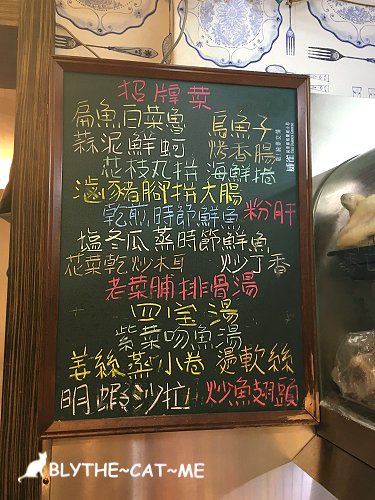 招牌菜
扁魚白菜魯 烏魚子
蒜泥鮮蚵 烤香腸
花枝丸拼海鮮捲
滷豬腳拼大腸
乾煎時節鮮魚 粉肝
塩冬瓜蒸時節鮮魚
花菜乾炒木耳 炒丁香
老菜脯排骨湯
四宝湯
紫菜吻魚湯
姜絲蒸小卷 燙軟絲
明蝦沙拉 炒魚翅頭
BLYTHE~CAT~ME